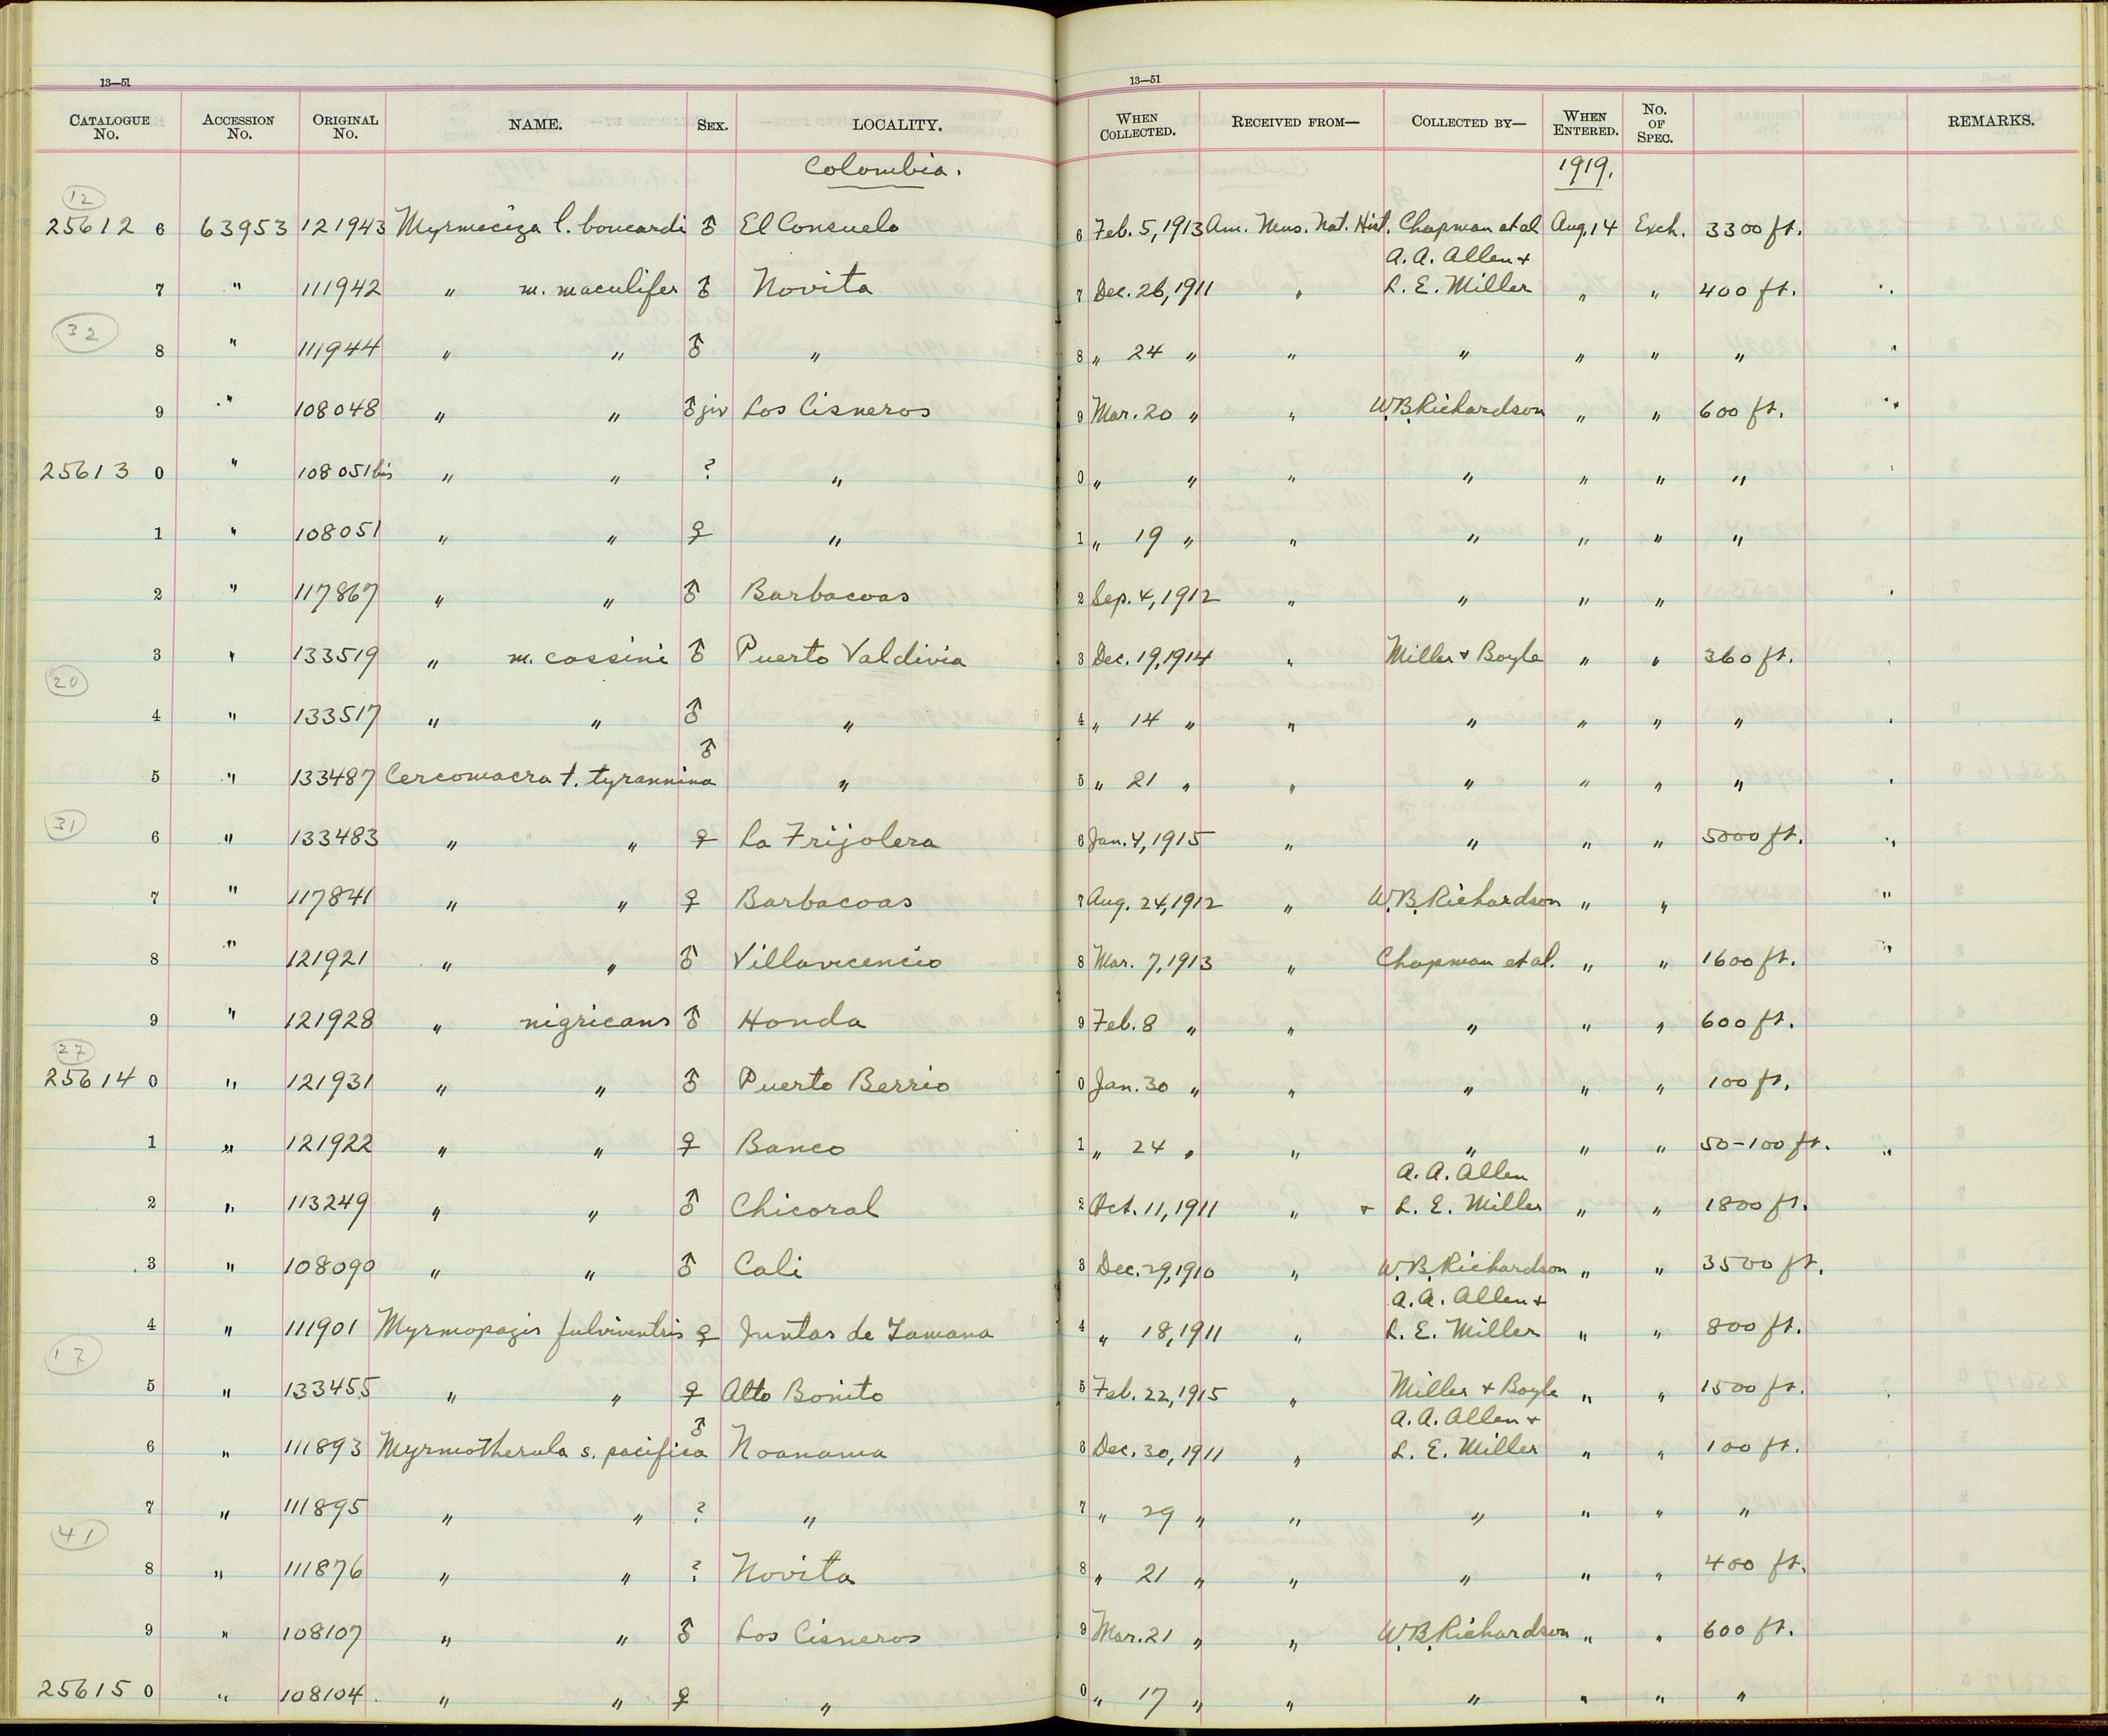 13—51
CATALOGUE No. ACCESSION No. ORIGINAL No. NAME. SEX. LOCALITY.
Colombia.
12
25612 6 63953 121943 Myrmeciza l. boucardi ♂ El Consuelo
7 " 111942 " m. maculifer ♂ Novita
32
8 " 111944 " " ♂ "
9 " 108048 " " ♂ juv Los Cisneros
25613 0 " 108051bis " " ? "
1 " 108051 " " ♀ "
2 " 117867 " " ♂ Barbacoas
3 " 133519 " m. cassini ♂ Puerto Valdivia
20
4 " 133517 " " ♂ "
5 " 133487 Cercomacra t. tyrannina ♂ "
31
6 " 133483 " " ♀ La Frijolera
7 " 117841 " " ♀ Barbacoas
8 " 121921 " " ♂ Villavicencio
9 " 121928 " nigricans ♂ Honda
27
25614 0 " 121931 " " ♂ Puerto Berrio
1 " 121922 " " ♀ Banco
2 " 113249 " " ♂ Chicoral
3 " 108090 " " ♂ Cali
4 " 111901 Myrmopagis fulviventris ♀ Juntas de Tamana
17
5 " 133455 " " ♀ Alto Bonito
6 " 111893 Myrmotherula s. pacifica ♂ Noanama
7 " 111895 " " ? "
41
8 " 111876 " " ? Novita
9 " 108107 " " ♂ Los Cisneros
25615 0 " 108104 " " ♀ "
13—51
WHEN COLLECTED. RECEIVED FROM— COLLECTED BY— WHEN ENTERED. No. OF SPEC. REMARKS.
1919.
6 Feb. 5, 1913 Am. Mus. Nat. Hist. Chapman et al Aug. 14 Exch. 3300 ft.
A. A. Allen +
7 Dec. 26, 1911 " L. E. Miller " " 400 ft. "
8 " 24 " " " " " "
9 Mar. 20 " " W. B. Richardson " " 600 ft. "
0 " " " " " " "
1 " 19 " " " " " "
2 Sep. 4, 1912 " " " "
3 Dec. 19, 1914 " Miller + Boyle " " 360 ft.
4 " 14 " " " " " "
5 " 21 " " " " " "
6 Jan. 4, 1915 " " " " 5000 ft. "
7 Aug. 24, 1912 " W. B. Richardson " " "
8 Mar. 7, 1913 " Chapman et al. " " 1600 ft. "
9 Feb. 8 " " " " " 600 ft.
0 Jan. 30 " " " " " 100 ft.
1 " 24 " " " " " 50-100 ft. "
A. A. Allen
2 Oct. 11, 1911 " + L. E. Miller " " 1800 ft.
3 Dec. 29, 1910 " W. B. Richardson " " 3500 ft.
A. A. Allen +
4 " 18, 1911 " L. E. Miller " " 800 ft.
5 Feb. 22, 1915 " Miller + Boyle " " 1500 ft.
A. A. Allen +
6 Dec. 30, 1911 " L. E. Miller " " 100 ft.
7 " 29 " " " " " "
8 " 21 " " " " " 400 ft.
9 Mar. 21 " " W. B. Richardson " " 600 ft.
0 " 17 " " " " " "